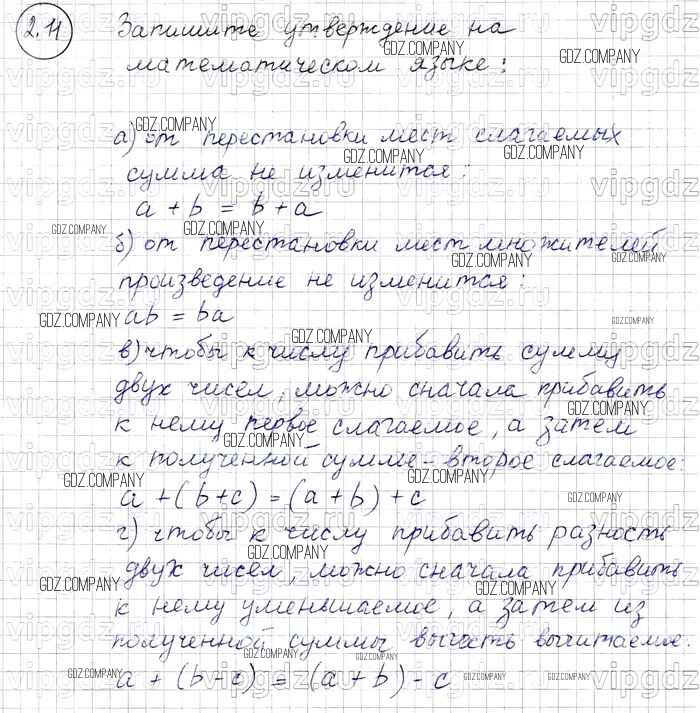 2.11 Запишите утверждение на
математическом языке:
а) от перестановки мест слагаемых
сумма не изменится:
a + b = b + a
б) от перестановки мест множителей
произведение не изменится:
ab = ba
в) чтобы к числу прибавить сумму
двух чисел, можно сначала прибавить
к нему первое слагаемое, а затем
к полученной сумме - второе слагаемое:
a + (b+c) = (a+b) + c
г) чтобы к числу прибавить разность
двух чисел, можно сначала прибавить
к нему уменьшаемое, а затем из
полученной суммы вычесть вычитаемое:
a + (b-c) = (a+b) - c